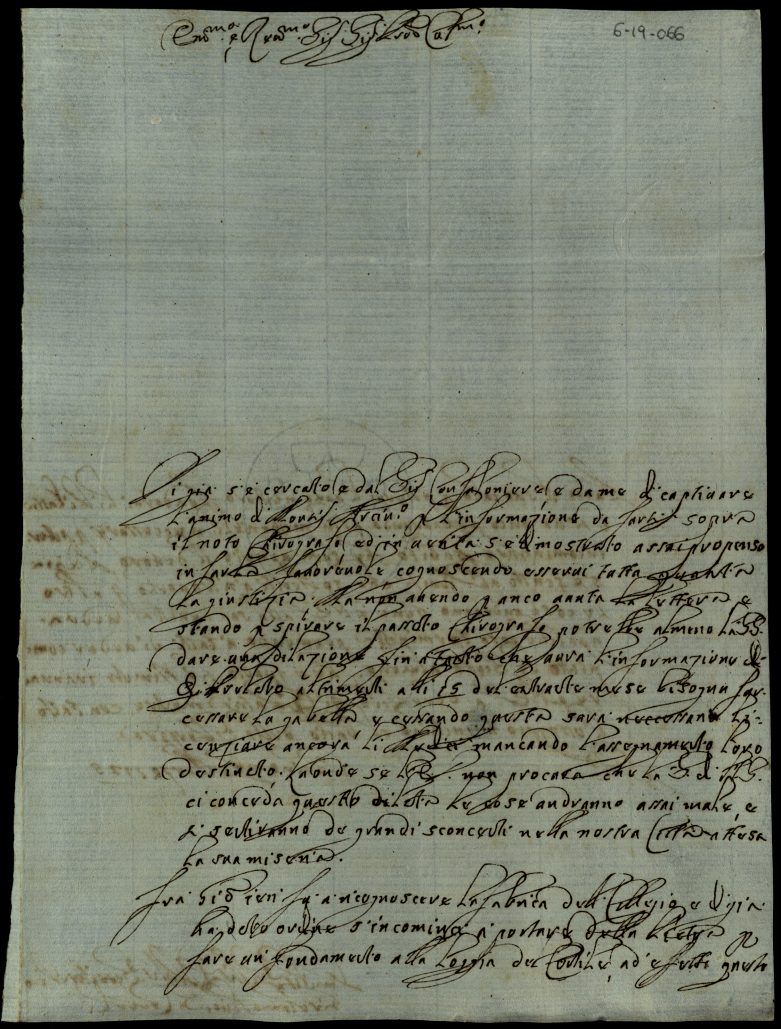 Em.mo e Rev.mo Sig. Sig. Prod. Col.mo
6-19-066
Di già s'è cercato e dal Sig. Confaloniere e da me di captivare
l'animo di Monsig. p l'informazione da farsi sopra
il noto Chirografo, ed in verità s'è dimostrato assai propenso
in farla favorevole cognoscendo esservi tutta quanta
la giustizia. Ma non avendo p anco avuta la lettera e
stando p spirare il passato Chirografo potrebbe almeno la S.
dare una dilazione fin a tanto che avrà l'informazione di
altrimenti alli 15 del entrante mese bisogna far
cessare la gabella e cessando questa sarà necessario li-
cenziare ancora li Medici mancando l'assegnamento loro
destinato. Laonde se non procura che la S. di
ci conceda questa le cose andranno assai male, e
si sentiranno de grandi sconcerti nella nostra Città attesa
la sua miseria.
ieri fu a ricognoscere la fabrica del Collegio e di già
ha dato ordine s'incominci a portare della p
fare un fondamento alla loggia del Cortile, questo